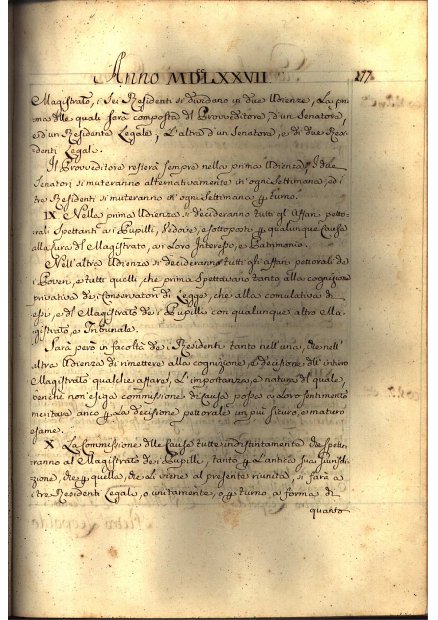 Anno MDCCLXXVII 177
Magistrato, i sei Residenti si dividano in due Udienze, La pri
ma delle quali sarà composta del Provveditore, d'un Senatore,
e d'un Residente Legale, L'altra d'un Senatore, e di due Resi
denti Legali.
Il Provveditore resterà sempre nella prima Udienza, i due
Senatori si muteranno alternativamente in ogni Settimana, ed i
tre Residenti si muteranno in ogni Settimana p turno.
IX Nella prima Udienza si decideranno tutti gli Affari petto
rali Spettanti ai Pupilli, Vedove, e sottoposti p qualunque Causa
alla Cura del Magistrato, a i Loro Interessi, e Patrimonio.
Nell'altra Udienza si decideranno tutti gli affari pettorali de
i Poveri, e tutti quelli che prima Spettavano tanto alla cognizione
privativa dei Conservatori di Legge, che alla comulativa di
essi, e del Magistrato dei Pupilli con qualunque altro Ma
gistrato, e Tribunale.
Sarà però in facoltà dei Residenti tanto nell'una, che nell'
altra Udienza di rimettere alla cognizione, e decisione dell'intiero
Magistrato qualche affare, L'importanza, e natura del quale,
benchè non esiga commissione di Causa possa a Loro sentimento
meritare anco p La decisione pettorale un più sicuro, e maturo
esame.
X La Commissione delle Cause tutte indistintamente che spette
ranno al Magistrato dei Pupilli, tanto p L'antica sua Giurisdi
zione, che p quella, che Li viene al presente riunita, si farà a
i tre Residenti Legali, o unitamente, o p turno, a forma di
quanto